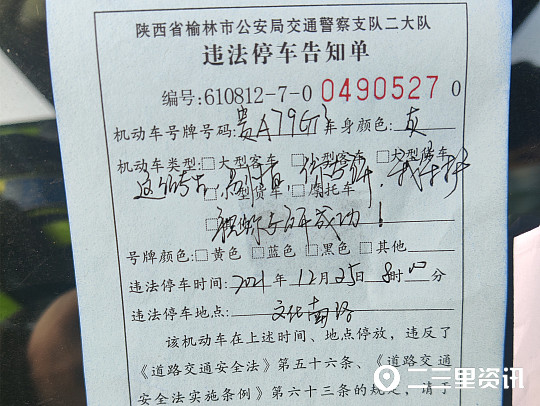 陕西省榆林市公安局交通警察支队二大队
违法停车告知单
编号:610812-7-0 0490527 0
机动车号牌号码:贵A79G 车身颜色:灰
机动车类型:□大型客车 □小型客车 □大型货车
□小型货车 □摩托车
祝你考研成功!
号牌颜色:□黄色 □蓝色 □黑色 □其他
违法停车时间:2021年12月25日8时00分
违法停车地点:文化南路
该机动车在上述时间、地点停放,违反了
《道路交通安全法》第五十六条、《道路交通
安全法实施条例》第六十三条的规定,请于
二三里资讯